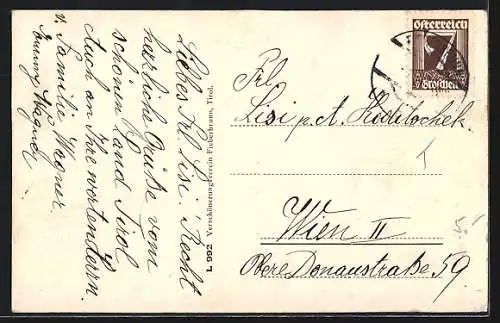 Liebes Frl. Lisi. Recht
herzliche Grüße vom
schönen Land Tirol
Auch an Ihre werten Herrn.
v. Familie Wagner.
Emmy Wagner
L 992 Verschönerungsverein Fieberbrunn, Tirol.
Österreich
7
Groschen
Frl.
Lisi p. A.
Wien II
Obere Donaustraße 59